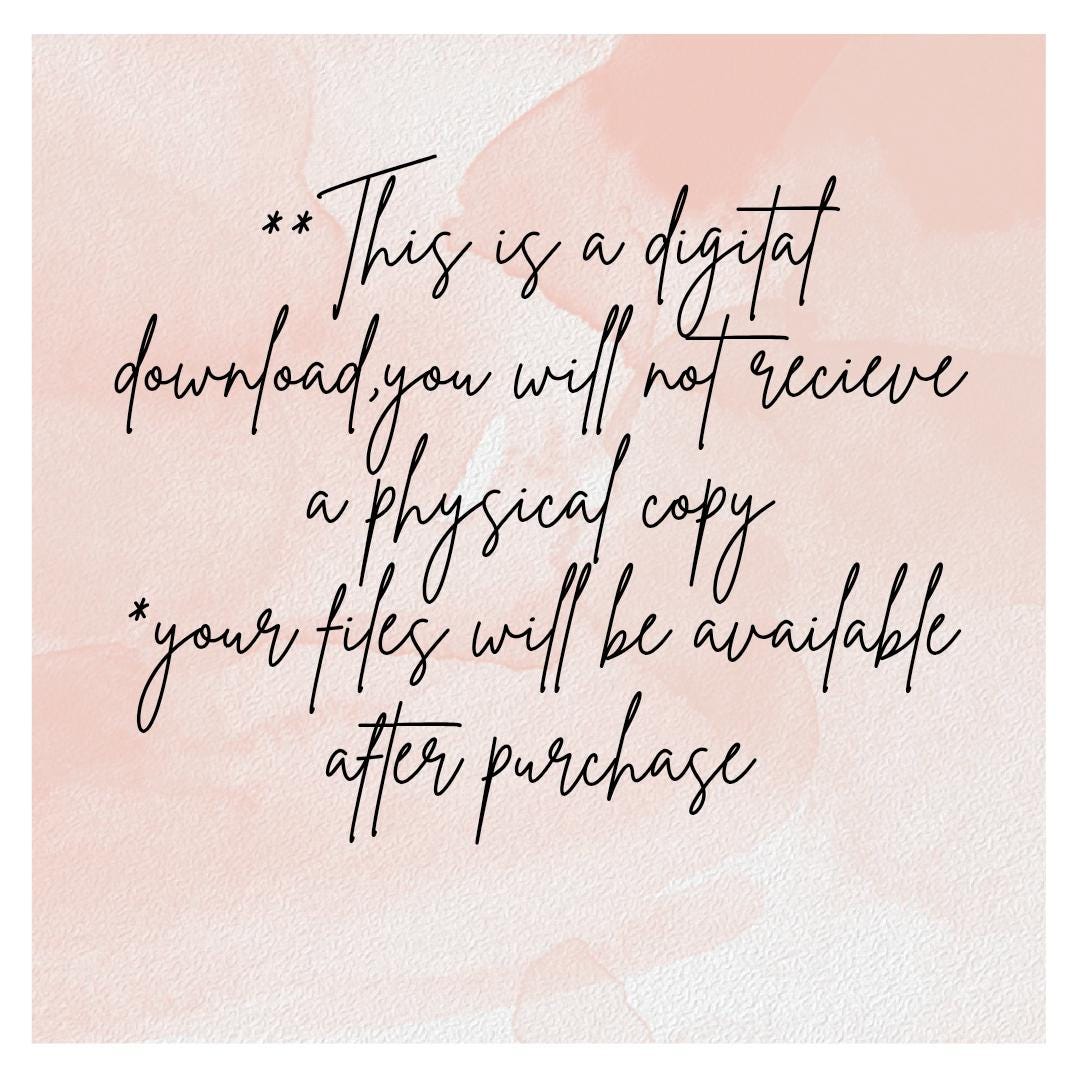 **This is a digital
download,you will not recieve
a physical copy
*your files will be available
after purchase